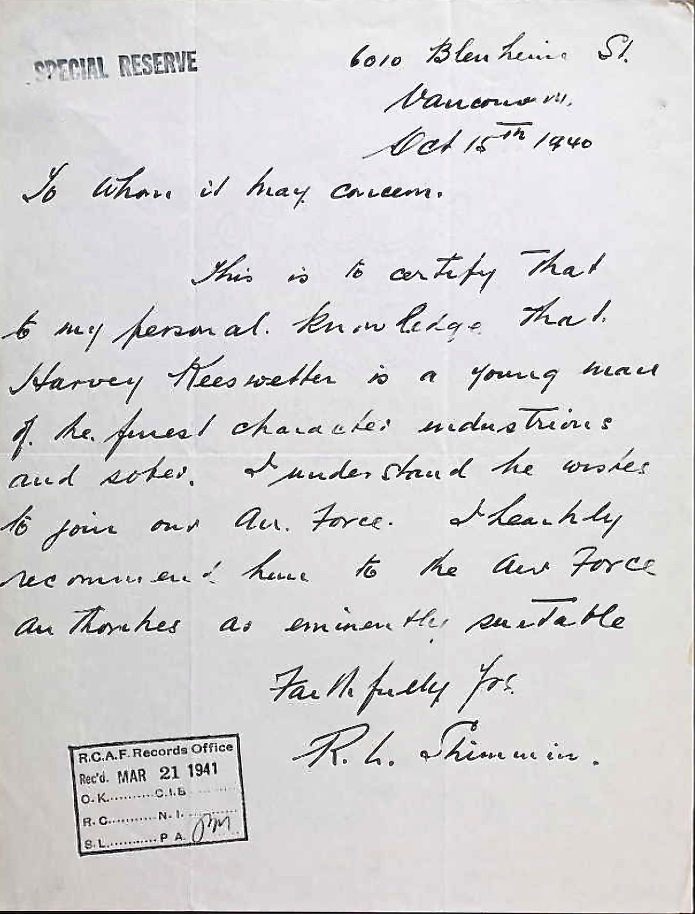 SPECIAL RESERVE
6010 Blenheim St.
Vancouver.
Oct 15th 1940
To Whom it may concern.
This is to certify that
to my personal knowledge that
Harvey Keeswetter is a young man
of the finest character industrious
and sober. I understand he wishes
to join our Air Force. I heartily
recommend him to the Air Force
authorities as eminently suitable
Faithfully Yrs.
R. L. Shimmin.
R.C.A.F. Records Office
Rec'd. MAR 21 1941
O.K.......... C.I.B..........
R.C.......... N.I..........
S.L.......... P.A.